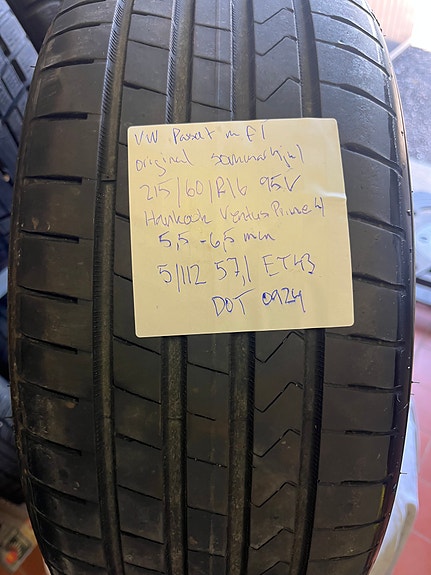 VW Passat m fl
original sommarhjul
215/60/R16 95V
Hankook Ventus Prime 4
5,5 - 6,5 mm
5/112 57,1 ET43
DOT 0924